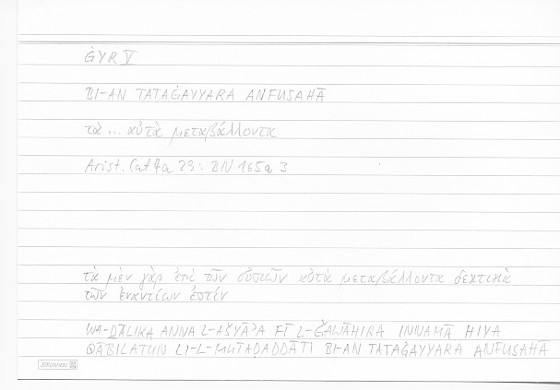 ĠYR V
BI-AN TATAĠAYYARA ANFUSAHĀ
τὰ ... αὐτὰ μεταβάλλοντα
Arist. Cat 4a 29: BN 165a 3
τὰ μὲν γὰρ ἐπὶ τῶν οὐσιῶν αὐτὰ μεταβάλλοντα δεκτικὰ
τῶν ἐναντίων ἐστίν
WA-ḎĀLIKA ANNA L-AŠYĀʾA FĪ L-ǦAWĀHIRA INNAMĀ HIYA
QĀBILATUN LI-L-MUTAḌĀDDĀTI BI-AN TATAĠAYYARA ANFUSAHĀ